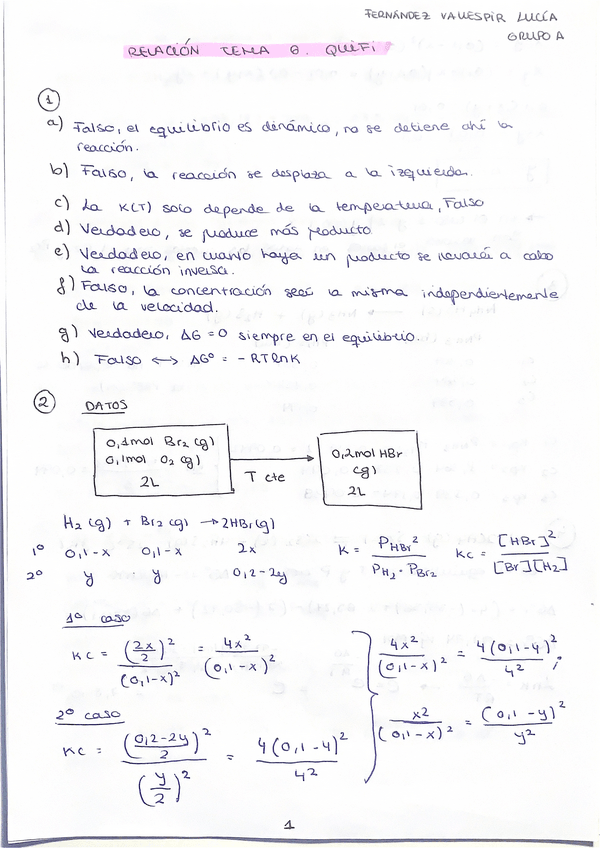 FERNÁNDEZ VALLESPIR LUCÍA
GRUPO A
RELACIÓN TEMA 6. QUIFI
1
a) Falso, el equilibrio es dinámico, no se detiene ahí la
reacción.
b) Falso, la reacción se desplaza a la izquierda.
c) La K(T) solo depende de la temperatura, Falso
d) Verdadero, se produce más producto
e) Verdadero, en cuanto haya un producto se llevará a cabo
la reacción inversa.
f) Falso, la concentración será la misma independientemente
de la velocidad.
g) Verdadero, ΔG = 0 siempre en el equilibrio.
h) Falso ↔ ΔG° = - RTlnK
2 DATOS
0,1mol Br₂ (g)
0,1mol O₂ (g)
2L
T cte
0,2mol HBr
(g)
2L
H₂ (g) + Br₂ (g) → 2HBr(g)
1º 0,1-x 0,1-x 2x
2º y y 0,2-2y
K = P_HBr² / P_H₂ · P_Br₂ Kc = [HBr]² / [Br][H₂]
1º caso
Kc = (2x/2)² / (0,1-x)² = 4x² / (0,1-x)²
4x² / (0,1-x)² = 4(0,1-y)² / y² ;
2º caso
x² / (0,1-x)² = (0,1-y)² / y²
Kc = ((0,2-2y)/2)² / (y/2)² = 4(0,1-y)² / y²
1